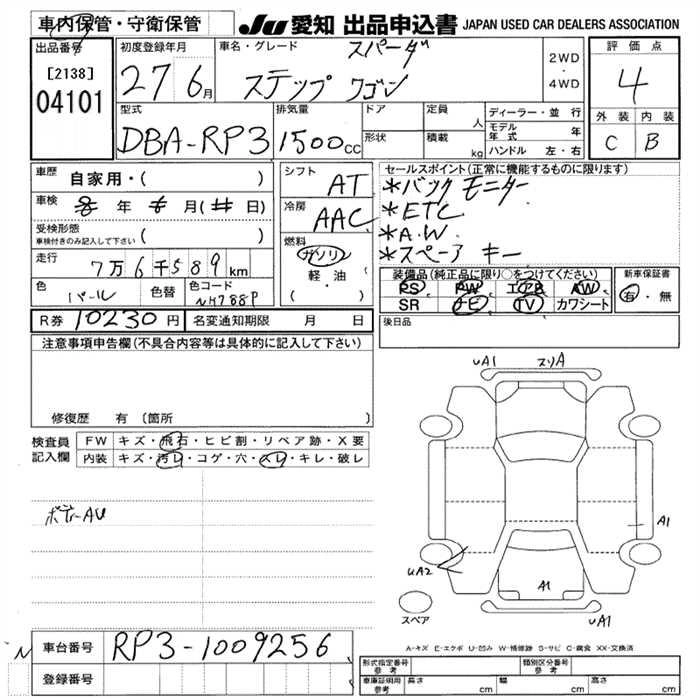 車内保管・守衛保管 JU 愛知 出品申込書 JAPAN USED CAR DEALERS ASSOCIATION
出品番号 初度登録年月 車名・グレード スパーダ 2WD ・ 4WD 評価点
[2138] 04101 27 6月 ステップ ワゴン 4
型式 排気量 ドア 定員 人 ディーラー・並 行 外装 内装
DBA-RP3 1500cc 形状 積載 kg モデル年式 年 C B
ハンドル 左・右
車歴 自家用・( ) シフト AT セールスポイント(正常に機能するものに限ります)
車検 年 月( 日) 冷房 AAC *バックモニター
受検形態 車検付きのみ記入して下さい ( ) *ETC
*A.W
走行 7万6千589km 燃料 ガソリン *スペアーキー
軽・油 ・( )
色 パール 色替 色コード NH788P
装備品(純正品に限り○をつけてください) 新車保証書
PS PW エアB AW 有・無
SR ナビ TV カワシート
R券 10230円 名変通知期限 月 日 後日品
注意事項申告欄(不具合内容等は具体的に記入して下さい)
修復歴 有 〔箇所 〕
検査員記入欄 FW キズ・飛石・ヒビ割・リペア跡・X要
内装 キズ・汚レ・コゲ・穴・スレ・キレ・破レ
ボデーAU
UA1 スリA
A1
UA2
A1
スペア UA1
A-キズ E-エクボ U-凹み W-補修跡 S-サビ C-腐食 XX-交換済
N 車台番号 RP3-1009256
登録番号
形式指定番号 参考 類別区分番号 参考
車庫証明用 参考 長さ cm 幅 cm 高さ cm